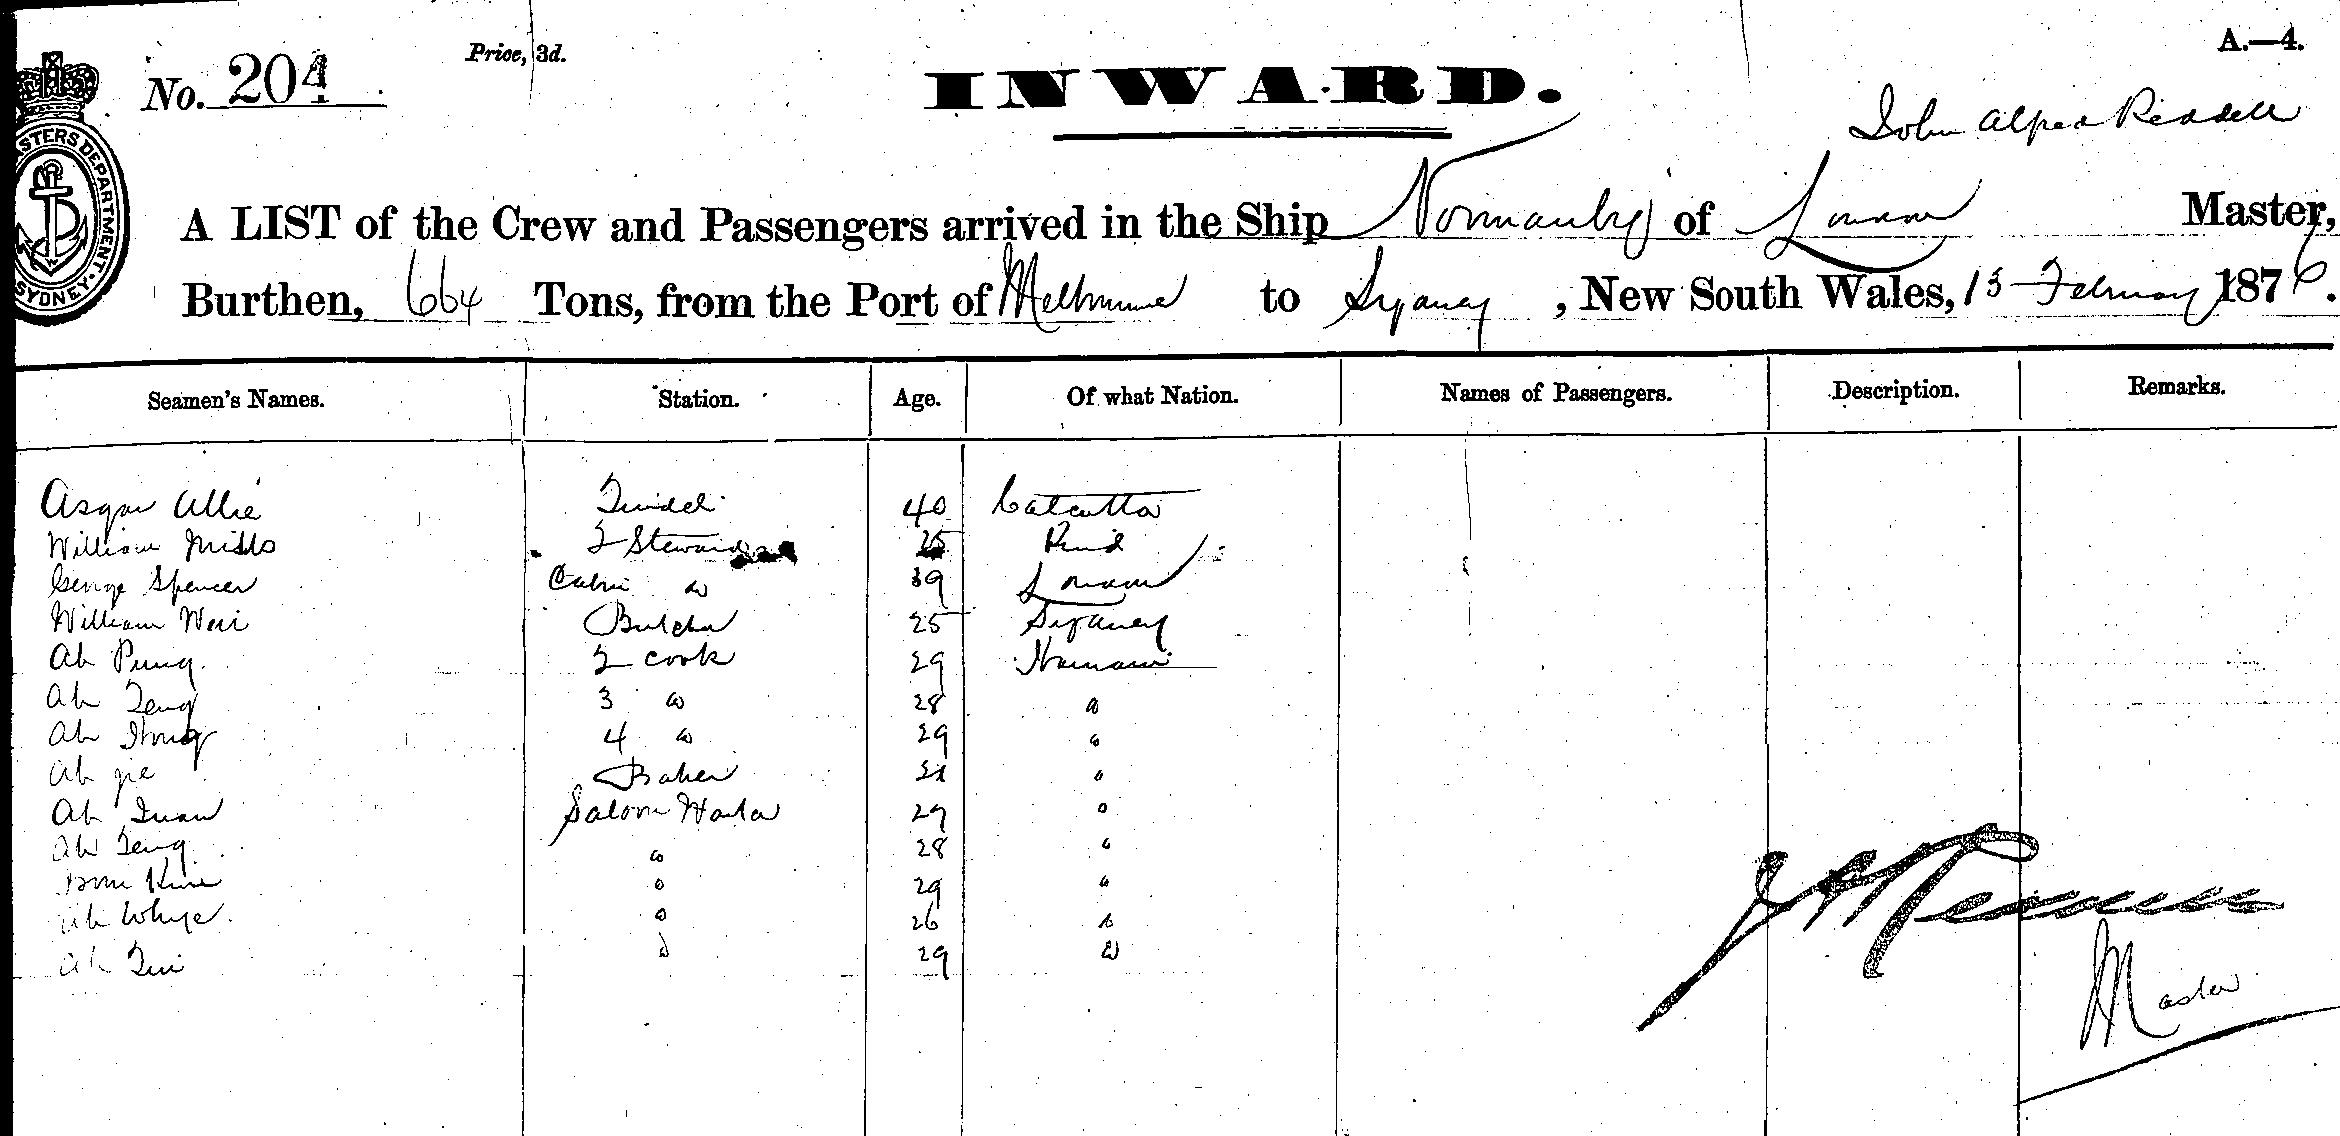 Price, 3d.
A.—4.
No. 204
INWARD.
John Alfred Reddell
A LIST of the Crew and Passengers arrived in the Ship Normanby of London Master,
Burthen, 664 Tons, from the Port of Melbourne to Sydney, New South Wales, 13 February 1876.
SYDNEY
DEPARTMENT
Seamen's Names. Station. Age. Of what Nation. Names of Passengers. Description. Remarks.
Asgar Allie Tindel 40 Calcutta
William Mills 2 Steward 25
George Spencer Cabin do 39 London
William Weir Butcher 25 Sydney
Ah Pung 2 cook 29 Hainam
Ah Teng 3 do 28 do
Ah Hong 4 do 29 do
Ah Baker do
Ah Tuan Saloon Waiter 29 do
Ah Teng do 28 do
do 29 do
Ah Whye do 26 do
Ah do 29 do
Master